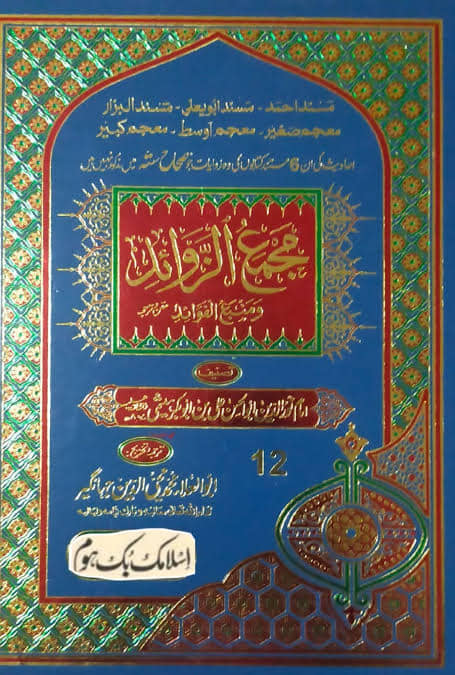 مسند احمد - مسند ابویعلی - مسند البزار
معجم صغیر - معجم اوسط - معجم کبیر
احادیث کی ان 6 کتابوں کی وہ روایات جو صحاح ستہ میں مذکور نہیں ہیں
مجمع الزَّوَائد
ومنبع الفوائد
تصنیف
امام نورالدین ابوالحسن علی بن ابوبکر ہیثمی
12
ترجمہ و تخریج
ابوالعلاء محمد محی الدین جہانگیر
اسلامک بک ہوم